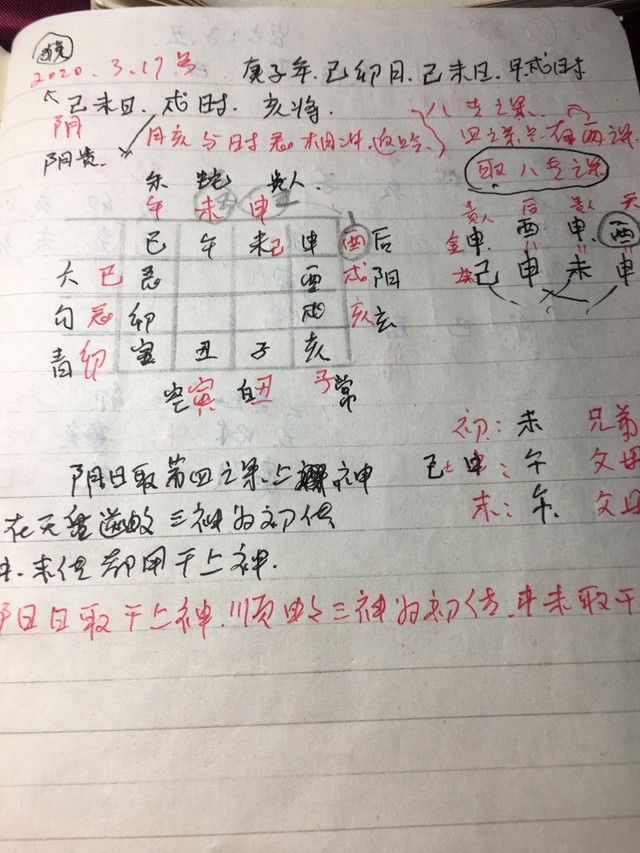 2020.3.17号 庚子年.己卯月.己未日.早戌时
己未日.戌时.亥将.
阴 月亥与日时 八专之课.
阴贵. 四之课只有两之课
取八专之课
朱 蛇 贵人.
午 未 申
贵人 后 贵人 天
巳 午 未 申 酉 后 金 申. 酉 申. 酉
大 巳 酉 戌 阴 己 申 未 申
勾 卯 戌 亥 玄
青 卯 寅 丑 子 亥
空 寅 白 丑 子 常
初: 未 兄弟
阴日取第四之课上神 午 父母
在天盘逆数三神为初传 末: 午. 父母
中.末传都用干上神.
阳日取干上神.顺数三神为初传.中末取干